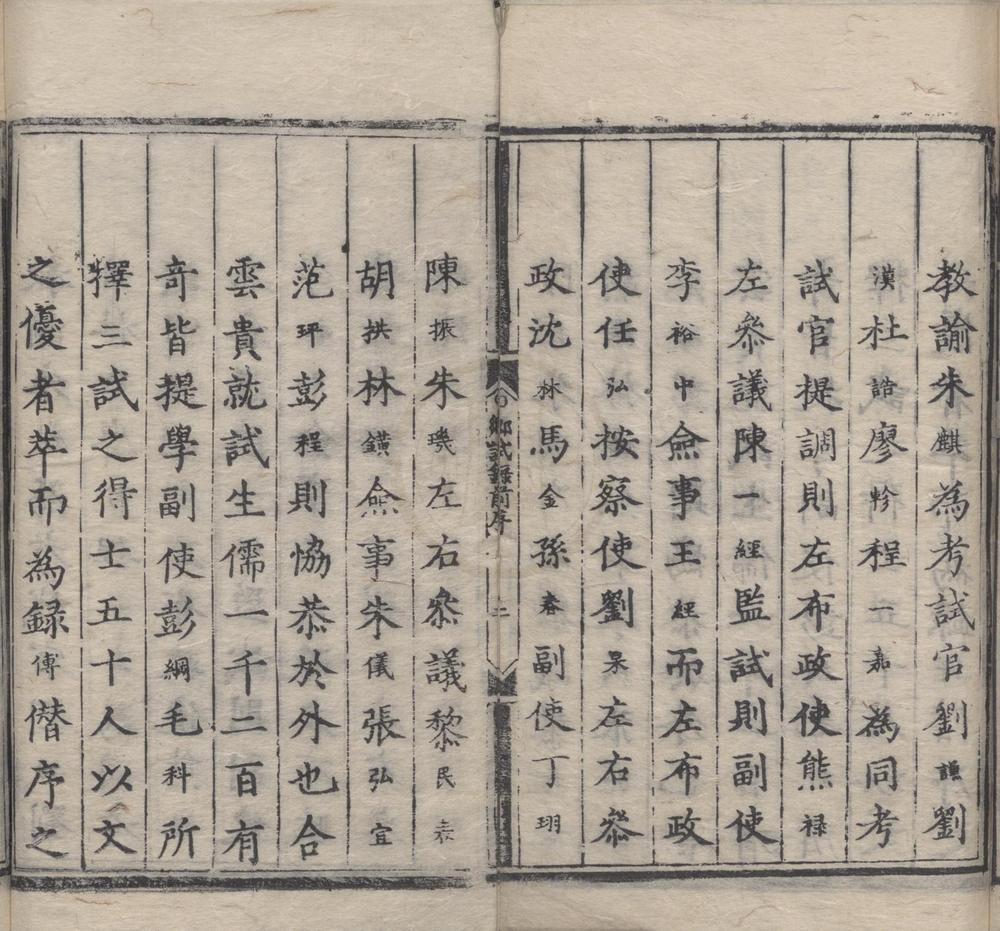 教諭朱麒為考試官劉謙劉
漢杜誥廖軫程一嘉為同考
試官提調則左布政使熊祿
左叅議陳一經監試則副使
李裕中僉事王經而左布政
使任弘按察使劉杲左右叅
政沈林馬金孫春副使丁珝
鄉試錄前序
二
陳振朱璣左右叅議黎民表
胡拱林鐄僉事朱儀張弘宜
范玶彭程則恊恭於外也合
雲貴就試生儒一千二百有
奇皆提學副使彭綱毛科所
擇三試之得士五十人以文
之優者萃而為録傅僭序之